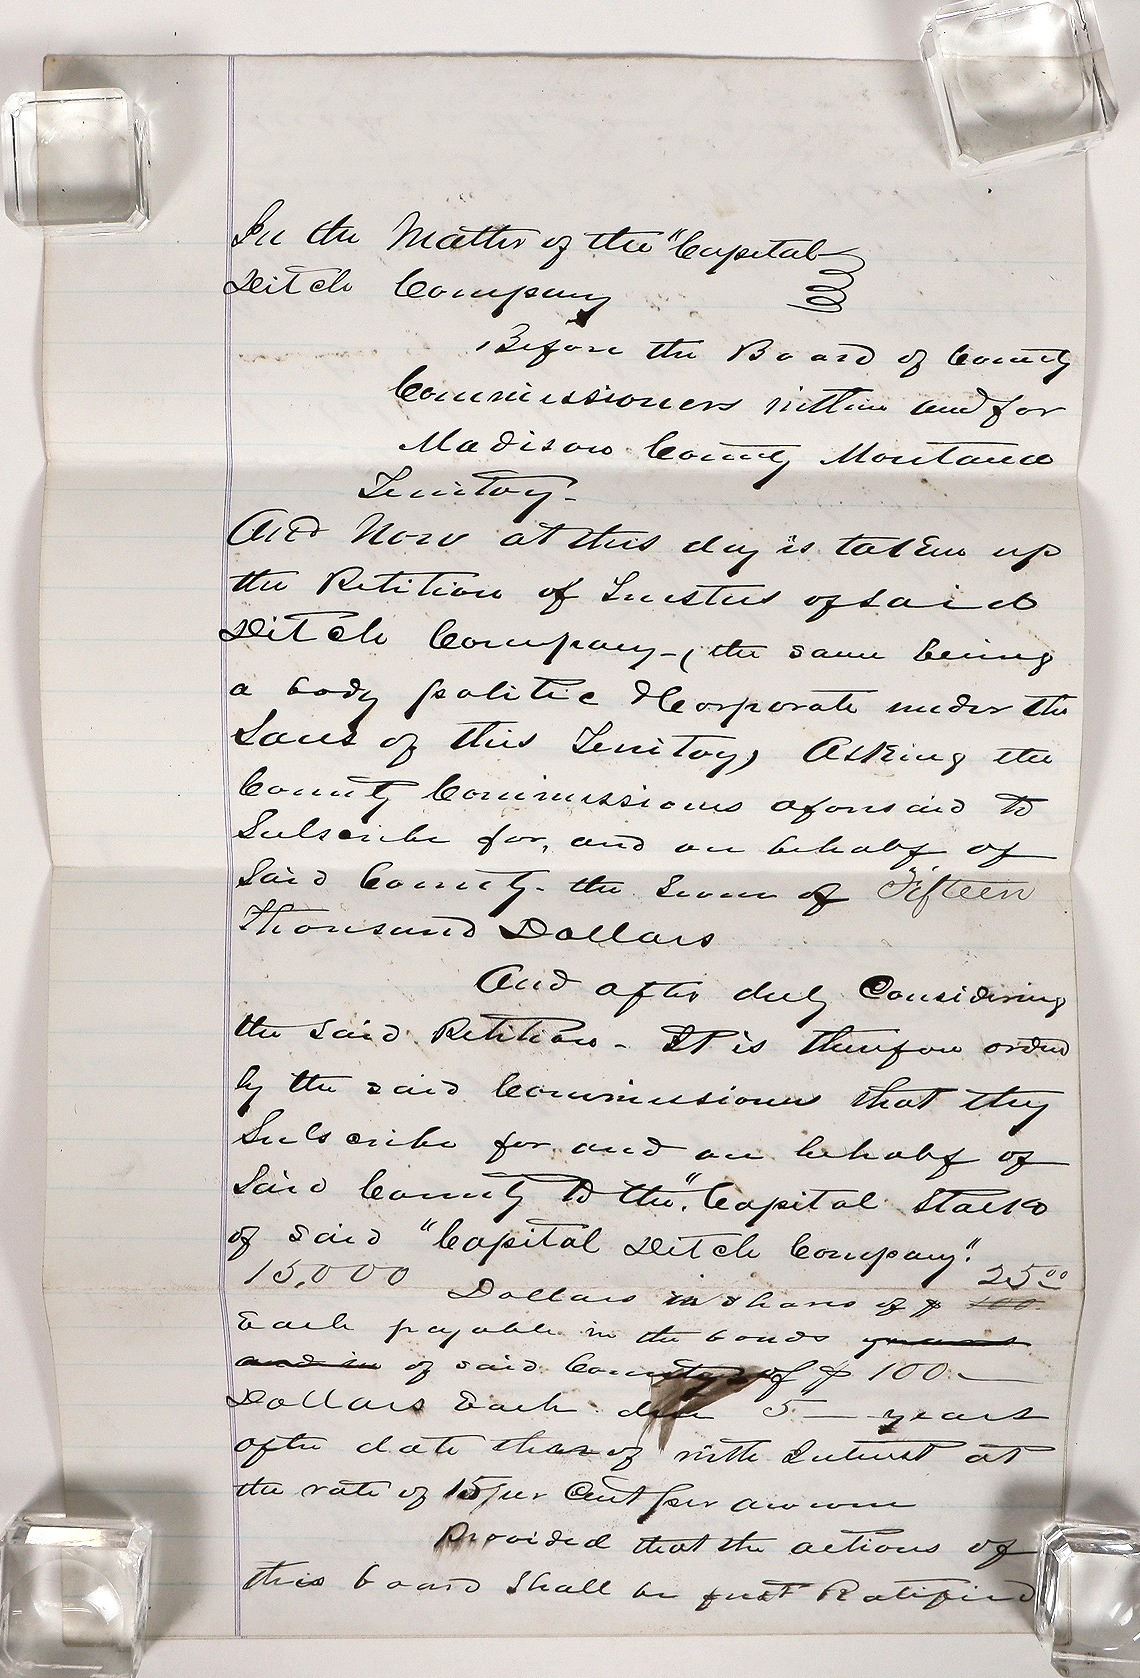 In the Matter of the "Capital
Ditch Company
Before the Board of County
Commissioners within and for
Madison County Montana
Territory-
And Now at this day is taken up
the Petition of Trustees of said
Ditch Company-, (the same being
a body politic & Corporate under the
Laws of this Territory) Asking the
County Commissioners aforesaid to
Subscribe for, and on behalf of
Said County- the Sum of Fifteen
Thousand Dollars
And after duly Considering
the said Petition- It is therefore orderd
by the said Commissioners that they
Subscribe for and on behalf of
Said County to the "Capital Stock
of said "Capital Ditch Company".
15,000 Dollars in shares of $ 100 25 00
Each payable in the bonds years
and in of said County of $ 100-
Dollars Each due 5- years
after date thereof with Interest at
the rate of 15 per Cent per annum
Provided that the actions of
this board shall be first Ratified